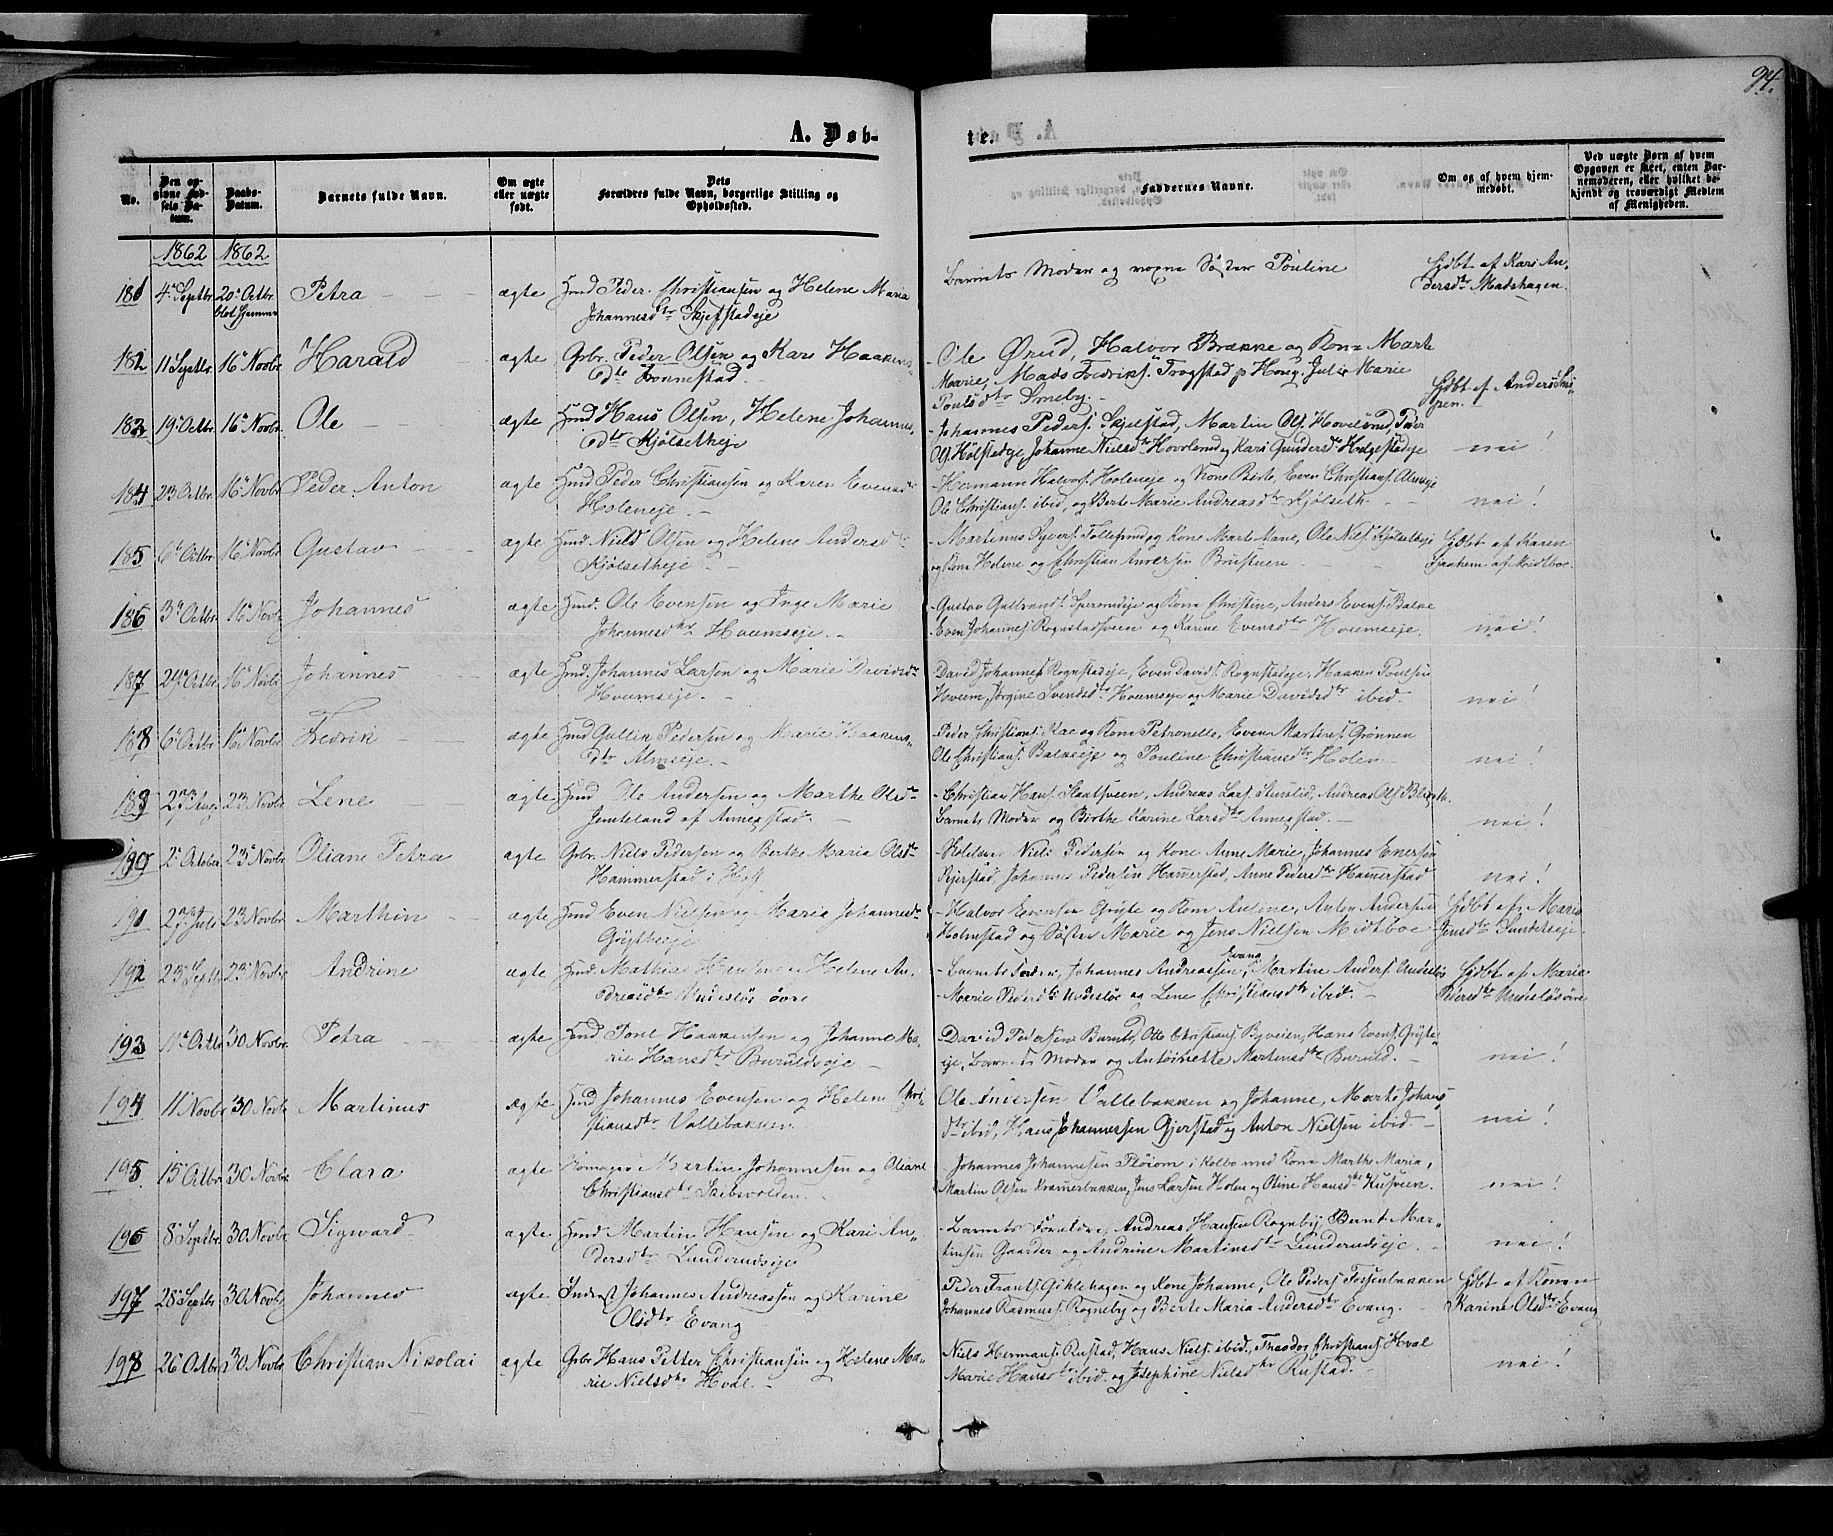 94.
A. Døb-
te.
No.
Den op-
givne Fød-
sels Da-
tum.
Daabs-
Datum.
Barnets fulde Navn.
Om ægte
eller uægte
født.
Dets
Forældres fulde Navn, borgerlige Stilling og
Opholdssted.
Faddernes Navne.
Om og af hvem hjem-
medøbt.
Ved uægte Børn af hvem
Opgaven er skeet, enten Bar-
nemoderen, eller hvilket be-
kjendt og troværdigt Medlem
af Menigheden.
1862 1862
181 4. Septbr 20. Octbr Petra ægte Hmd Peder Christiansen og Helene Maria
blot hjemme Johannesdtr Skjefstadeje
Barnets Moder og voxne Søster Pouline
Hjdbt af Kari An-
dersdtr Madshagen.
182 11 Septbr 16. Novbr Harald ægte Grbr. Peder Olsen og Kari Haakens-
dtr Fonnestad.
Ole Ørud, Halvor Brække og Kone Marte
Marie, Mads Fredriks. Trogstad p Houg. Julie Marie
Poulsdtr Smeby.
Hjdbt af Anders
183 19. Octbr. 16. Novbr. Ole ægte Hmd Hans Olsen, Helene Johannes-
dtr Kjølsetheje
Johannes Peders. Skjelstad, Martin Ols. Hovelsrud, Peder
Ols. Holstadeje, Johanne Nielsdtr Hovelsrud og Kari Gundersdtr Helgestadeje
nei!
184 23 Octbr. 16. Novbr Peder Anton ægte Hmd Peder Christiansen og Karen Evensdtr
Holeneje.
Hermann Halvors. Holeneje og Kone Berte, Even Christians. Almseje
Ole Christians. ibid, og Berte Marie Andreasdtr Kjølseth.
nei!
185 6. Octbr. 16. Novbr. Gustav ægte Hmd. Niels Olsen og Helene Andersdtr
Kjølsetheje.
Martinus Syvers. Tollefsrud og Kone Mart. Anne, Ole Niels. Kjølsetheje
og Kone Helene og Christian Andersen Brustuen
Hjdbt af Karen
186 3. Octbr. 16. Novbr Johannes ægte Hmd. Ole Evensen og Inge Marie
Johannesdtr Houmseje.
Gustav Gulbrands. og Kone Christine, Anders Evens. Balke
Even Johannes Rognstadsveen og Karine Evensdtr Houmseje.
nei!
187 24. Octbr 16. Novbr Johannes ægte Hmd. Johannes Larsen og Marie Davidsdtr
Houmseje.
David Johannes Rognstadeje, Even Davids. Rognstadeje, Haaken Poulsen
Hoveem, Jørgine Svendsdtr Houmseje og Marie Davidsdtr ibid.
nei!
188 6. Octbr 16. Novbr Fredrik ægte Hmd Gullik Pedersen og Marie Haakens-
dtr Almseje.
Peder Christians. Kae og Kone Petronelle, Even Martins. Grønnen
Ole Christians. Balkseje og Pouline Christiansdtr Holen
nei!
189 27. Aug 23 Novbr. Lene ægte Hmd Ole Andersen og Marthe Olsdtr
Jemteland af Annexstad.
Christian Hans. Slaatsveen, Andreas Lars. Skuslid, Andreas Ols.
Barnets Moder og Birthe Karine Larsdtr Annexstad.
nei!
190 2. October 23. Novbr Oliane Petra ægte Grbr. Niels Pedersen og Berthe Maria Olsdtr
Hammerstad i Hoff
Niels Pedersen og Kone Anne Marie, Johannes Enersen
Johannes Pedersen Hammerstad, Anne Pedersdtr Hammerstad
nei!
191 27de Juli 23 Novbr. Marthin ægte Hmd Even Nielsen og Maria Johannesdtr
Grytheeje
Halvor Evensen Gryte og Kone Antine, Anton Andersen
Holmstad og Søster Marie og Jens Nielsen Midtboe
Hjdbt af Marie
Jensdtr Sundetseje.
192 23. Septb 23. Novbr. Andrine ægte Hmd. Mathias Hansen og Helene An-
dreasdtr Undesløs øvre
Barnets Fader, Johannes Andreassen Evang, Martin Anders. Undesløs
Marie Pedersdtr Undesløs og Lene Christiansdtr ibid.
Hjdbt af Marie
Pedersdtr Undesløs øvre
193 11te Octbr 30 Novbr. Petra ægte Hmd Poul Haakensen og Johanne Ma-
rie Hansdtr Burulseje
David Pedersen Burulds, Otto Christians. Byveien, Hans Evens. Gryte-
eje, Barnets Moder og Antoinette Martinsdtr Buruld.
nei!
194 11. Novbr 30 Novbr Martinus ægte Hmd Johannes Evensen og Helene Chri-
stiansdtr Vallebakken.
Ole Andersen Vallebakken og Johanne, Marte Johans-
dtr ibid, Hans Johannessen Gjerstad og Anton Nielsen ibid.
nei!
195. 15 Octbr 30 Novbr. Clara ægte Martin Johannesen og Oliane
Christiansdtr Skibsvolden.
Johannes Johannesen Fløiom i Kolbo med Kone Marthe Maria,
Martin Olsen Kræmerbakken, Jens Larsen Holen og Oline Hansdtr Kusveen.
nei!
196 8. Septbr. 30 Novbr. Sigward ægte Hmd Martin Hansen og Kari An-
dersdtr Sunderudseje
Barnets Forældre, Andreas Hansen Rogneby, Bernt Mar-
tinsen Gaarder og Andrine Martinsdtr Sunderudseje.
nei!
197 28. Septbr 30 Novbr. Johannes ægte Inderst Johannes Andreassen og Karine
Olsdtr Evang
Peder Frants. Gihlehagen og Kone Johanne, Ole Peders Fossenbakken
Johannes Rasmus. Rogneby og Berte Maria Andersdtr Evang.
Hjdbt af Konen
Karine Olsdtr Evang
198 26 Octbr 30 Novbr. Christian Nikolai ægte Grbr Hans Petter Christiansen og Helene Ma-
rie Nielsdtr Hval.
Niels Hermans. Rustad, Hans Niels. ibid., Theodor Christians. Hval
Marie Hansdtr ibid. og Josephine Nielsdtr Rustad.
nei!